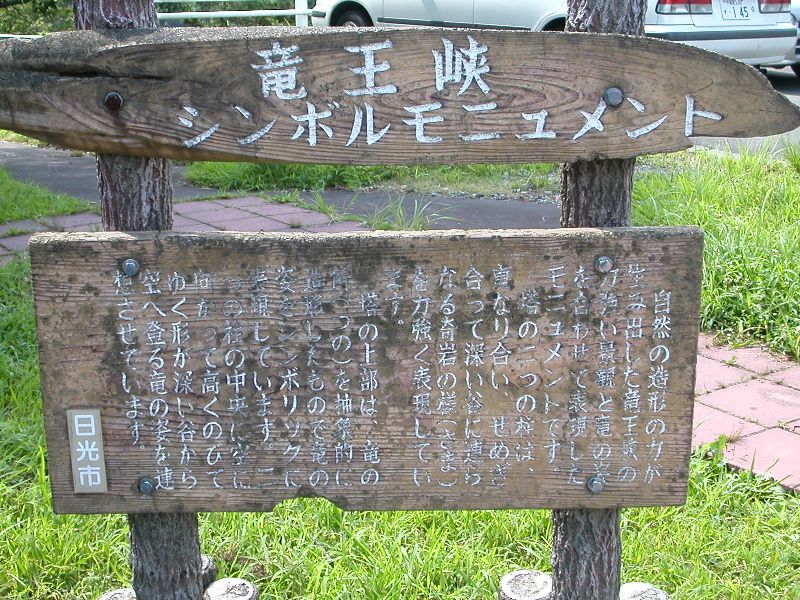 竜王峡
シンボルモニュメント
自然の造形の力が
生み出した竜王峡の
力強い景観と竜の姿
を合わせて表現した
モニュメントです。
塔の二つの柱は、
重なり合い、せめぎ
合って深い谷に連ら
なる奇岩の様(さま)
を力強く表現してい
ます。
塔の上部は、竜の
角(つの)を抽象的に
造形したもので竜の
姿をシンボリックに
表現しています。二
つの柱の中央に空に
向かって高くのびて
ゆく形が深い谷から
空へ登る竜の姿を連
想させています。
日光市
・145